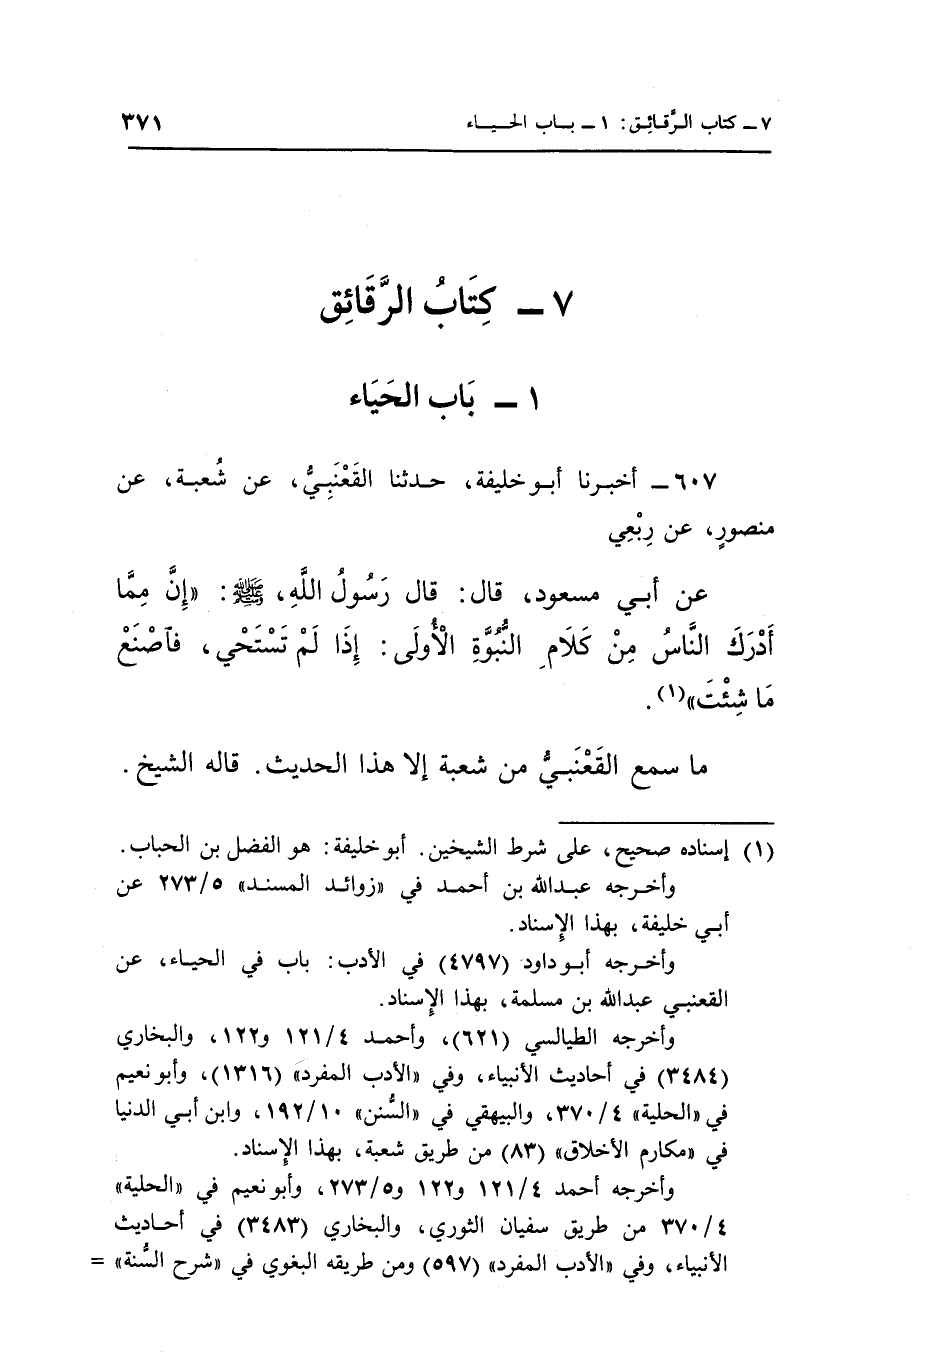 ٧ ـ كتاب الرَّقائِق: ١ ـ باب الحياء ٣٧١
٧ ـ كِتَابُ الرَّقَائِق
١ ـ بَاب الحَيَاء
٦٠٧ ـ أخبرنا أبو خليفة، حدثنا القَعْنَبِيُّ، عن شُعبة، عن
منصورٍ، عن رِبْعِي
عن أبي مسعود، قال: قال رَسُولُ اللَّهِ، ﷺ: «إِنَّ مِمَّا
أَدْرَكَ النَّاسُ مِنْ كَلَامِ النُّبُوَّةِ الْأُولَى: إِذَا لَمْ تَسْتَحْي، فَاَصْنَعْ
مَا شِئْتَ»(١).
ما سمع القَعْنَبيُّ من شعبة إلا هذا الحديث. قاله الشيخ.
(١) إسناده صحيح، على شرط الشيخين. أبو خليفة: هو الفضل بن الحباب.
وأخرجه عبدالله بن أحمد في «زوائد المسند» ٢٧٣/٥ عن
أبي خليفة، بهذا الإسناد.
وأخرجه أبو داود (٤٧٩٧) في الأدب: باب في الحياء، عن
القعنبي عبدالله بن مسلمة، بهذا الإسناد.
وأخرجه الطيالسي (٦٢١)، وأحمد ١٢١/٤ و١٢٢، والبخاري
(٣٤٨٤) في أحاديث الأنبياء، وفي «الأدب المفرد» (١٣١٦)، وأبو نعيم
في «الحلية» ٣٧٠/٤، والبيهقي في «السُّنن» ١٩٢/١٠، وابن أبي الدنيا
في «مكارم الأخلاق» (٨٣) من طريق شعبة، بهذا الإسناد.
وأخرجه أحمد ١٢١/٤ و١٢٢ و٢٧٣/٥، وأبو نعيم في «الحلية»
٣٧٠/٤ من طريق سفيان الثوري، والبخاري (٣٤٨٣) في أحاديث
الأنبياء، وفي «الأدب المفرد» (٥٩٧) ومن طريقه البغوي في «شرح السُّنة» =